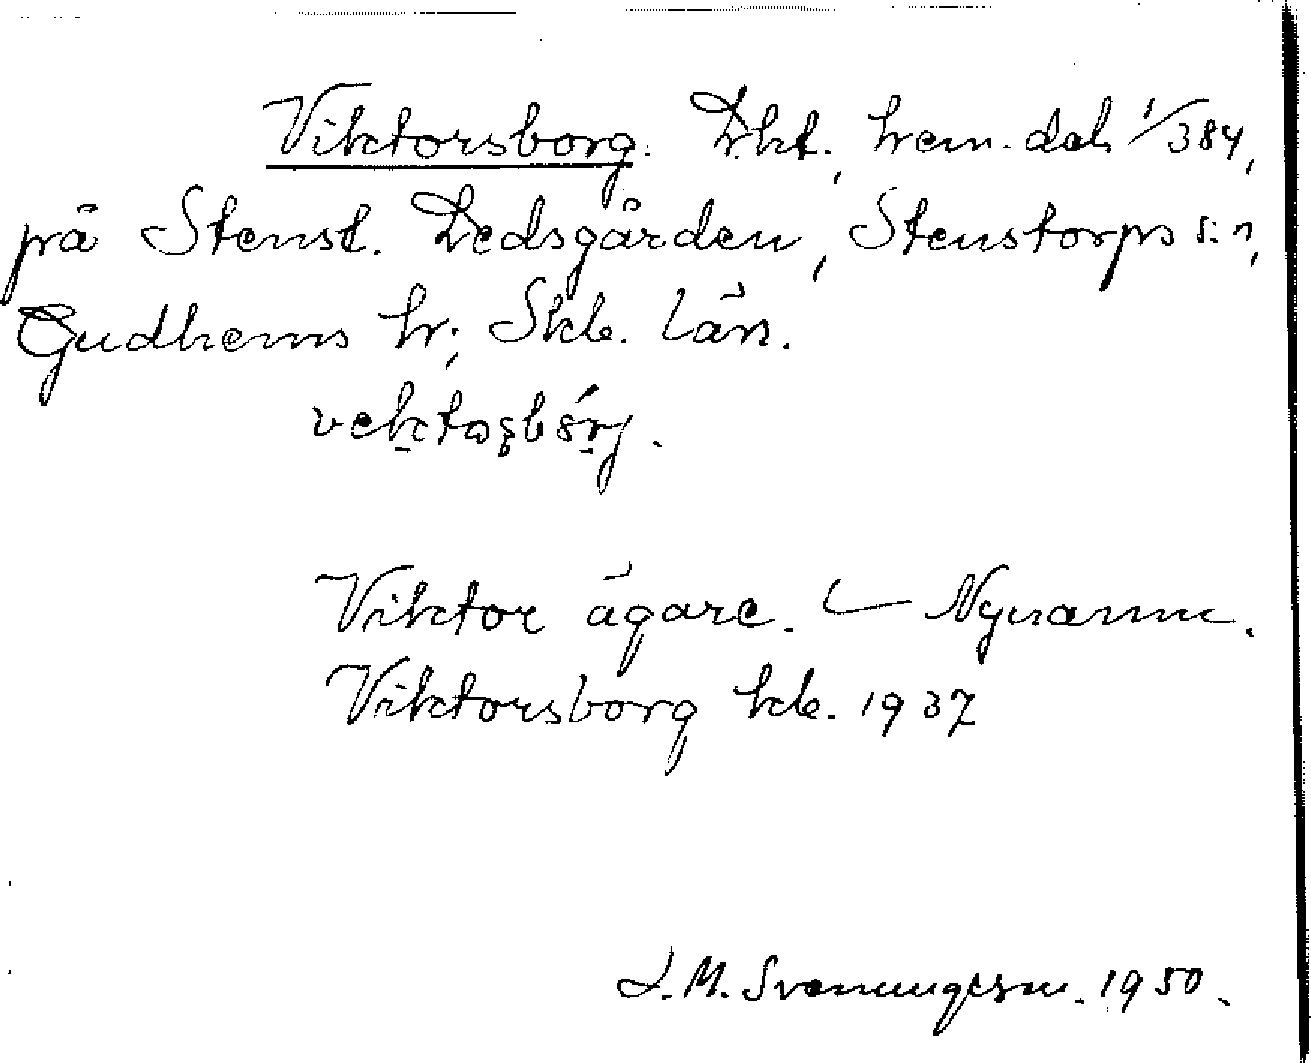 Viktorsborg. Lht., hem. del 1/384,
på Stenst. Dedsgården, Stenstorps s:n,
Gudhems hr; Skb. län.
Viktor ägare. — Nynamn.
Viktorsborg kb. 1937
J. M. Svenungsson. 1950.